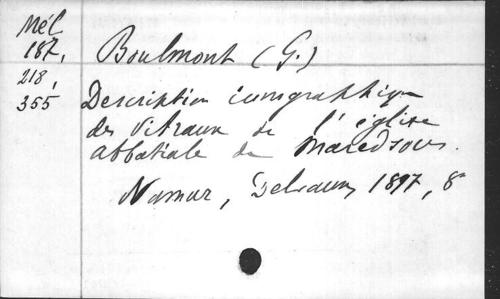 Mél
187,
218,
355
Boulmont (G.)
Description iconographique
des vitraux de l'église
abbatiale de Maredsous.
Namur, Delvaux, 1897, 8°